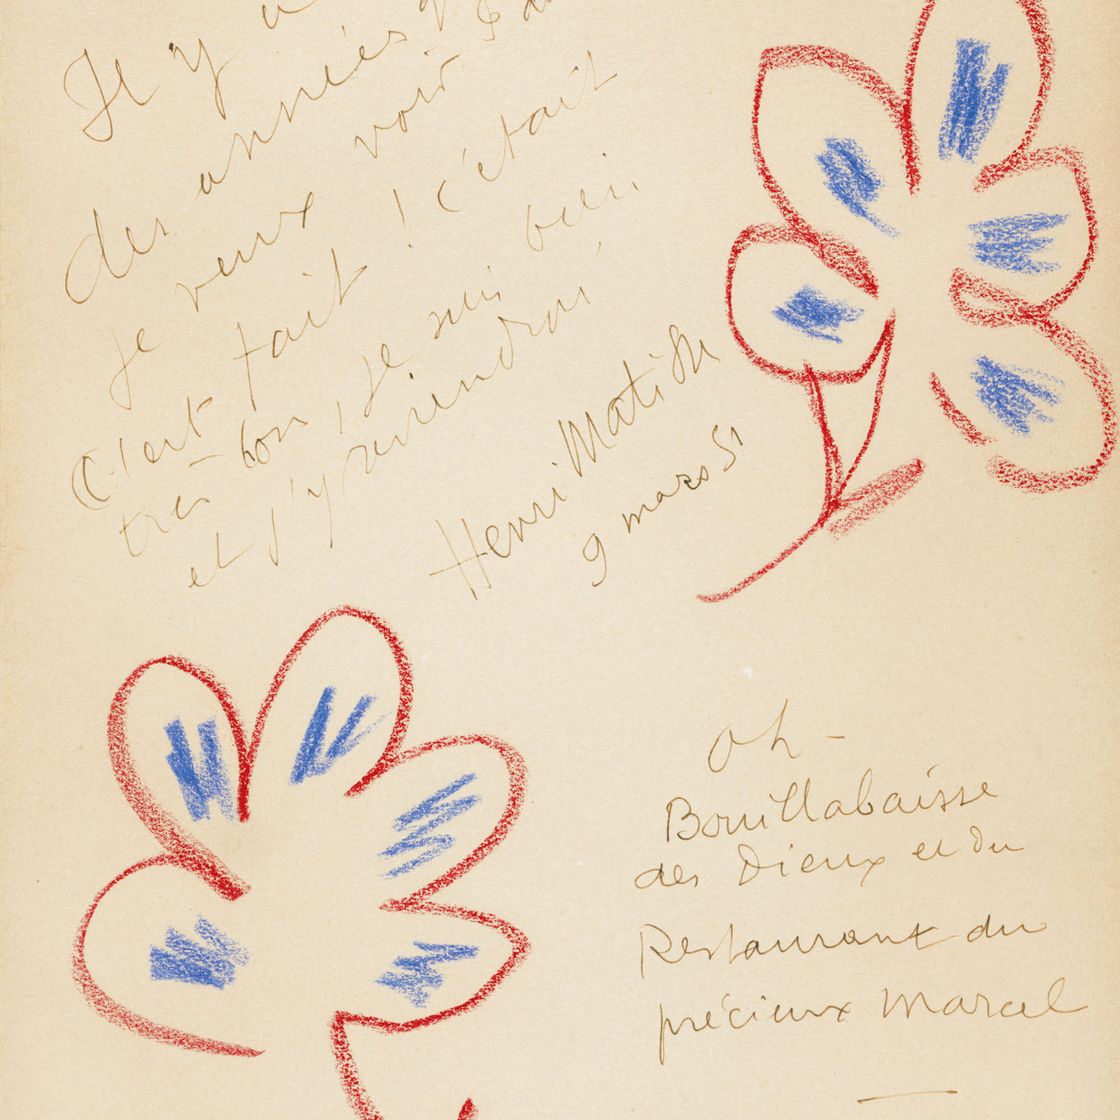 Il y a
des années
je veux voir
C'est fait ! C'était
très bon, je suis bien
et j'y reviendrai
Henri Matisse
9 mars 51
Oh -
Bouillabaisse
des Dieux et du
Restaurant du
précieux Marcel